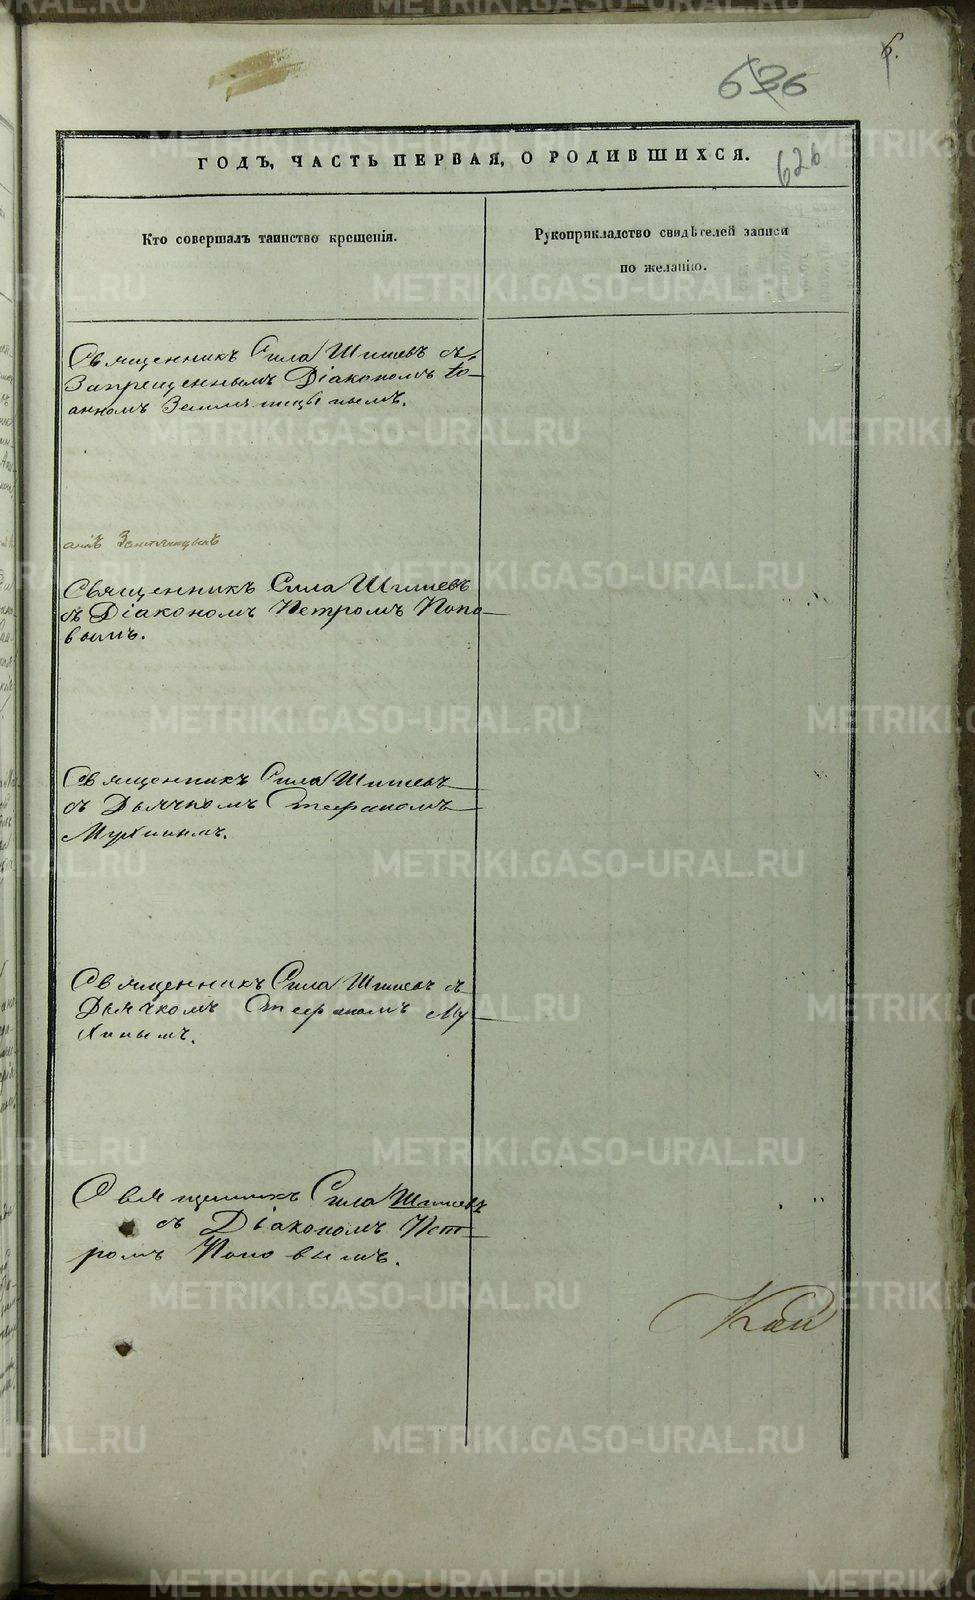 6.
636
626
ГОДЪ, ЧАСТЬ ПЕРВАЯ, О РОДИВШИХСЯ.
Кто совершалъ таинство крещенія.
Рукоприкладство свидѣтелей записи
по желанію.
Священникъ Сила Шишевъ съ
Запрещеннымъ Діакономъ Іо-
анномъ
Священникъ Сила Шишевъ
съ Діакономъ Петромъ Попо-
вымъ.
Священникъ Сила Шишевъ
съ Дьячкомъ Стефаномъ
Мухинымъ.
Священникъ Сила Шишевъ съ
Дьячкомъ Стефаномъ Му-
хинымъ.
Священникъ Сила Шишевъ
съ Діакономъ Пет-
ромъ Поповымъ.
METRIKI.GASO-URAL.RU